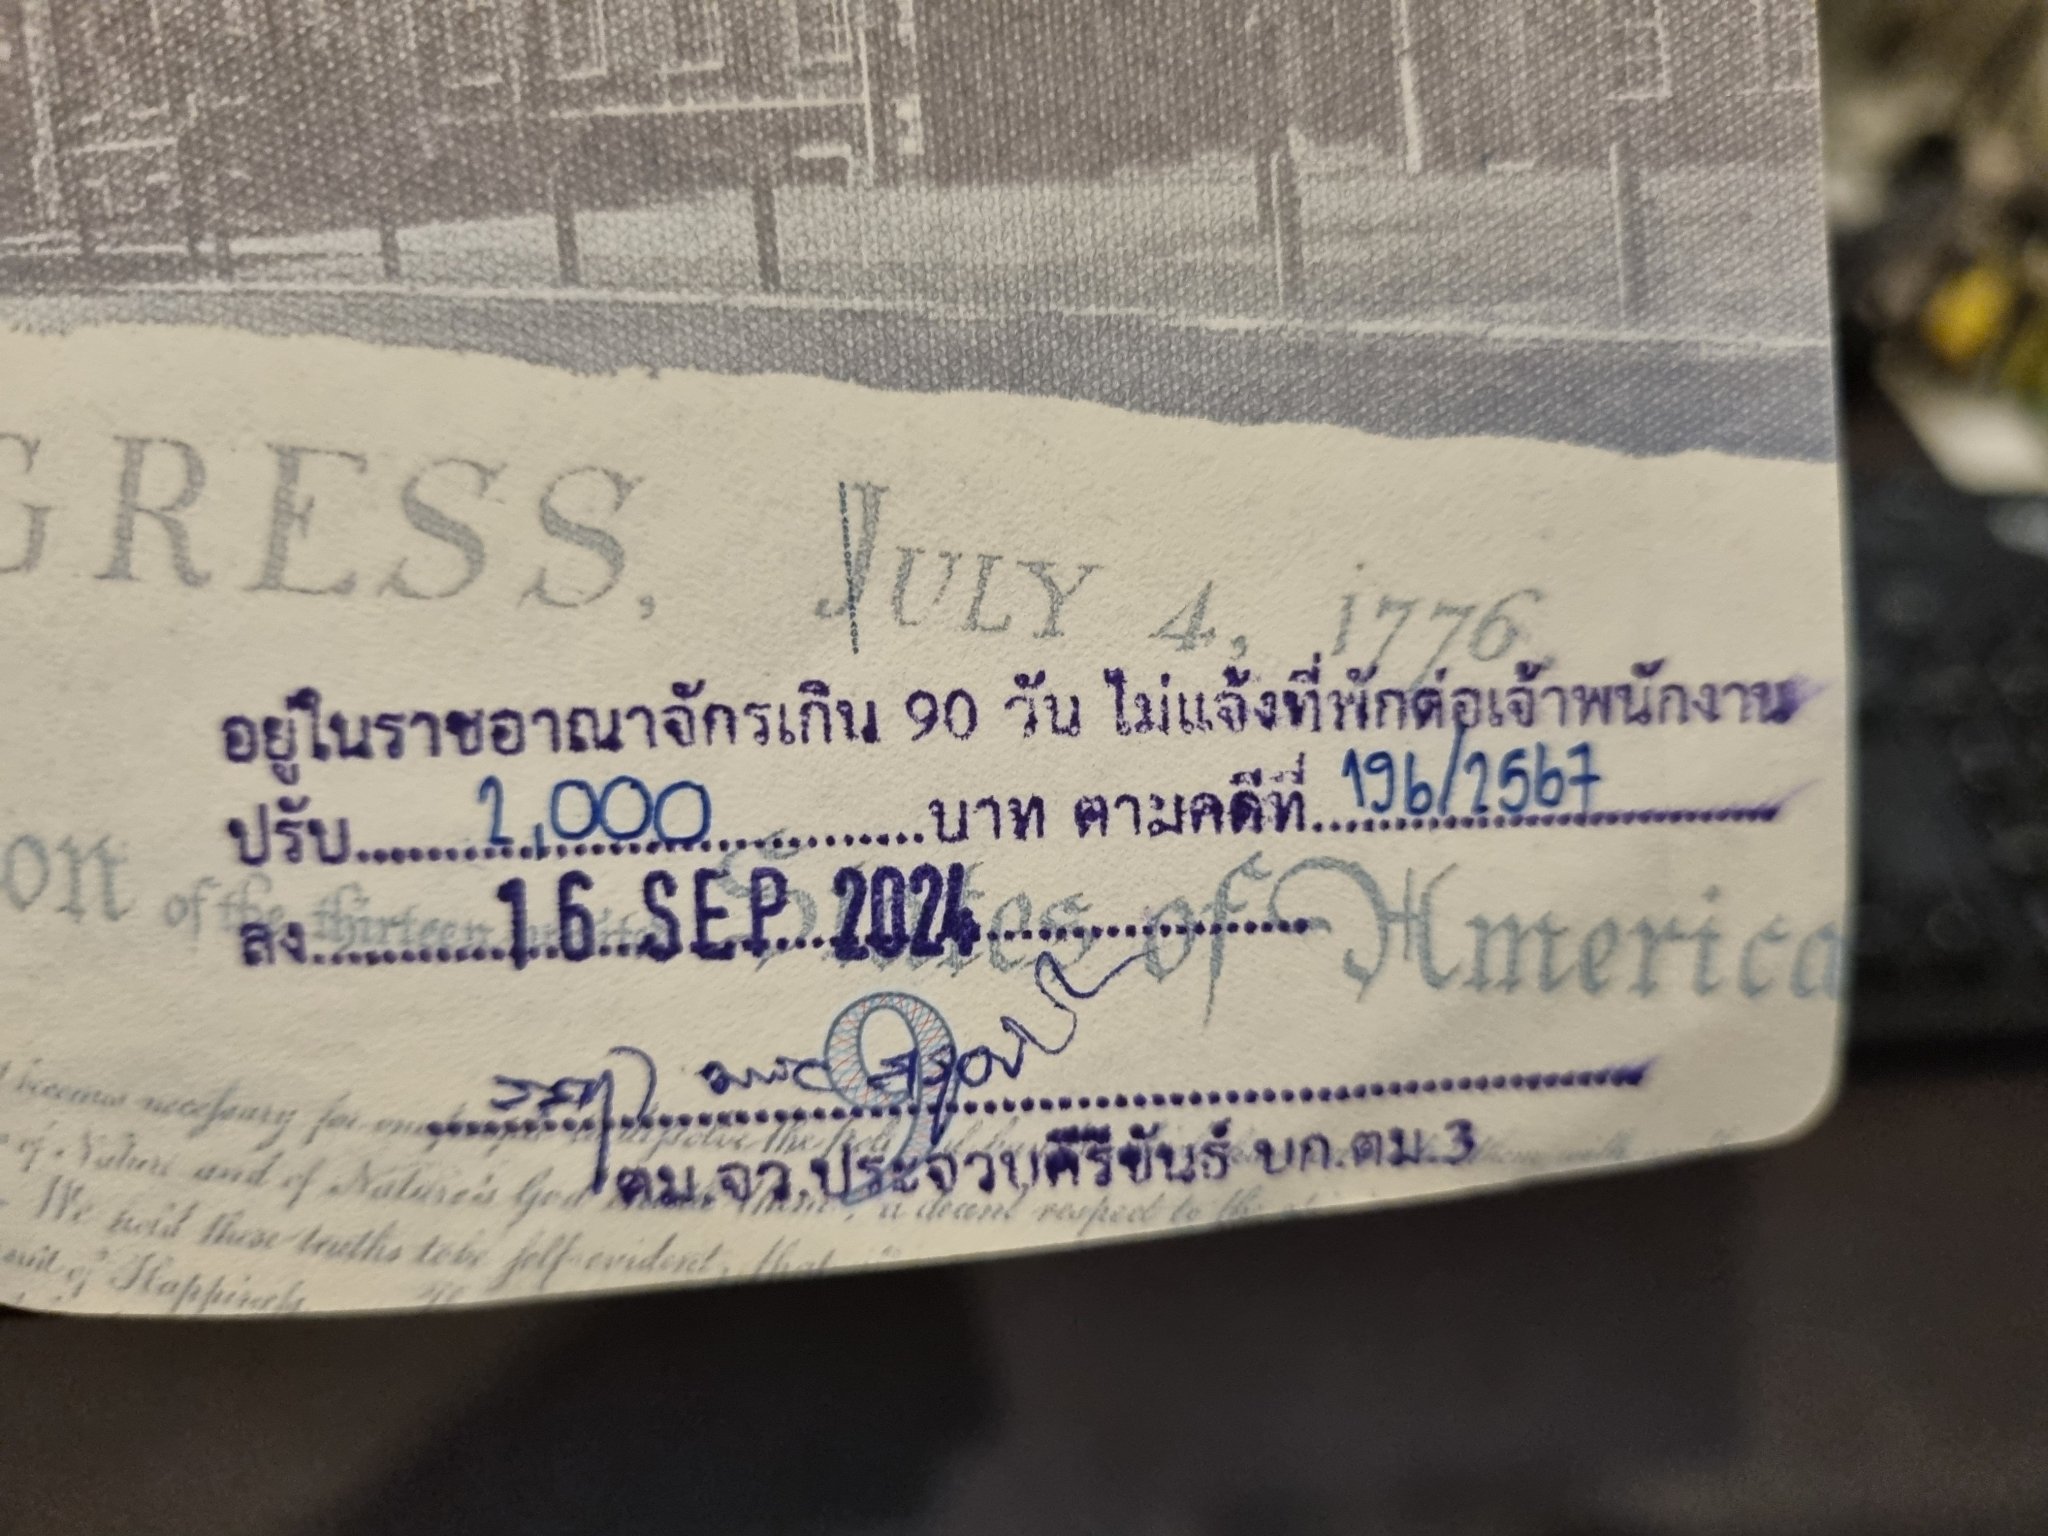 GRESS, JULY 4, 1776
อยู่ในราชอาณาจักรเกิน 90 วัน ไม่แจ้งที่พักต่อเจ้าพนักงาน
ปรับ.......2,000.......บาท ตามคดีที่.......196/2567.......
on of the thirteen States of America
ลง.......16 SEP 2024.......
9
becomes necessary for one
of Nature and of Nature's God a decent respect to the
We hold these truths to be self-evident, that
suit of Happiness
ตม.จว.ประจวบคีรีขันธ์ บก.ตม.3